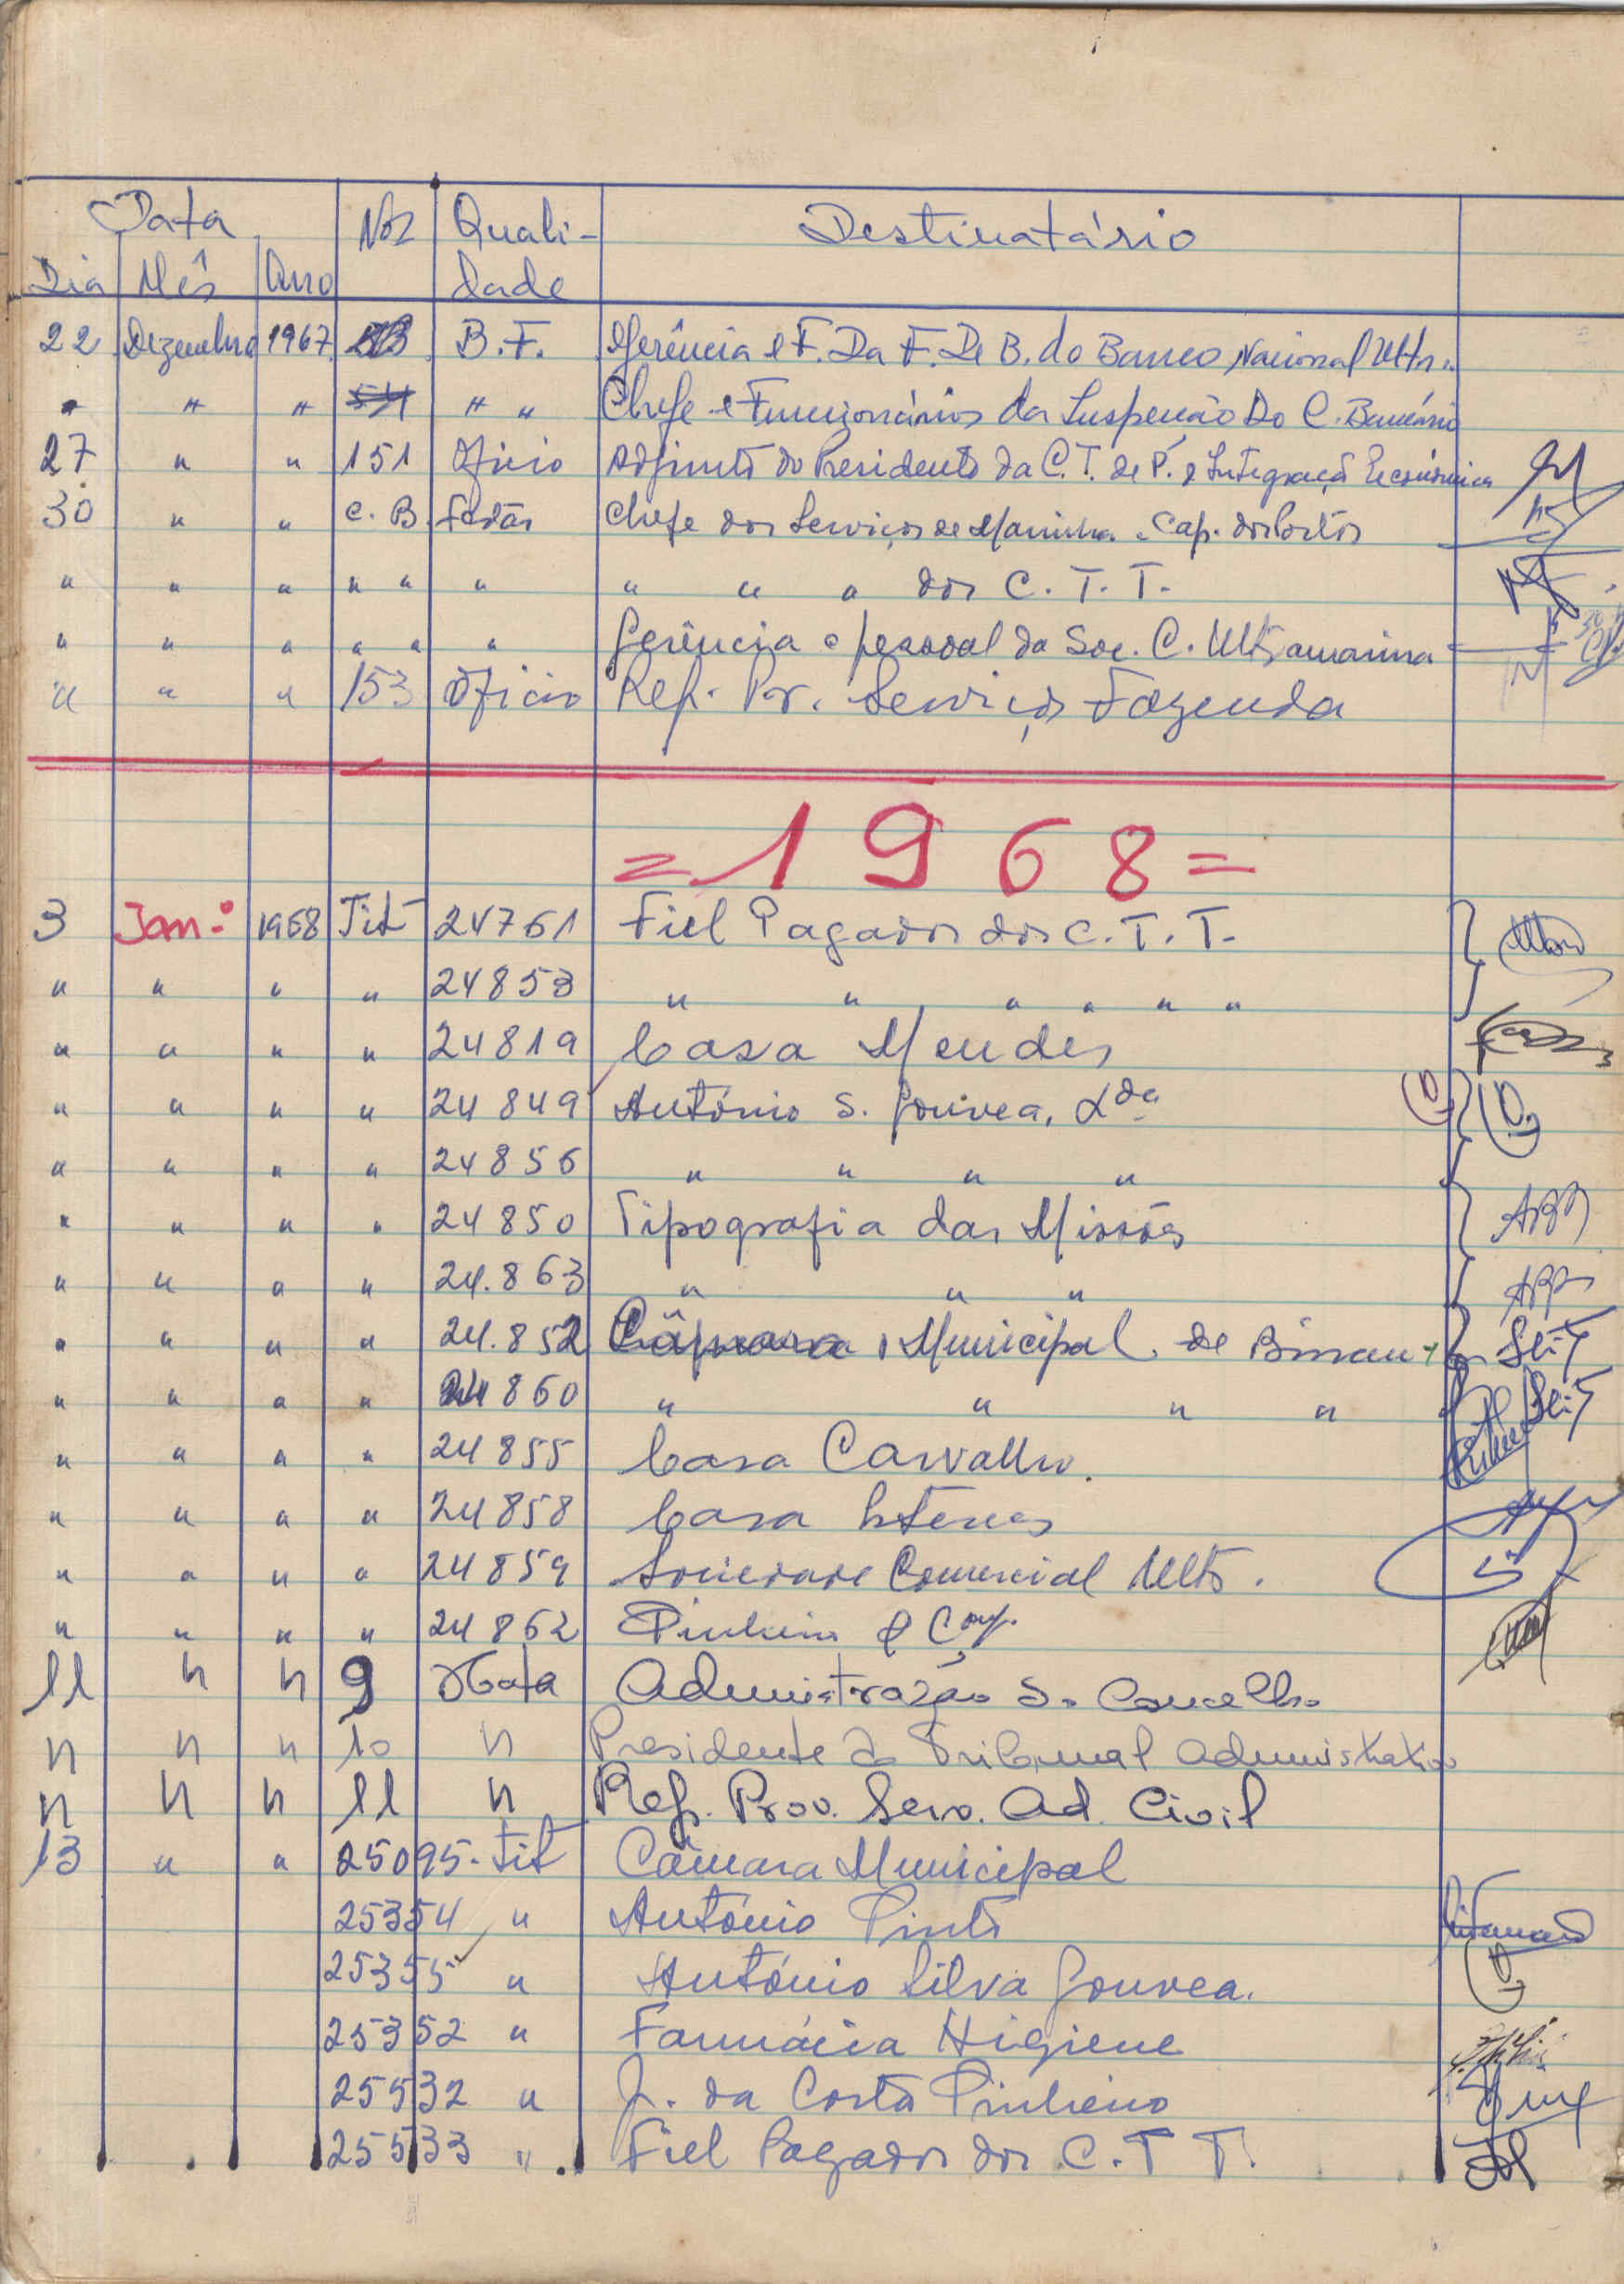 Data Nos Quali- Destinatário
Dia Mês Ano dade
22 Dezembro 1967 B.F. Gerência e F. Da F. De B. do Banco Nacional Ultr.
" " " " " Chefe e Funcionários da Inspenção Do C. Bancário
27 " " 151 Ofício Adjunto do Presidente da C.T. de P. e Integração Económica
30 " " C. B. Chefe dos Serviços de Marinha e Cap. dos Portos
" " " " " " " " " dos C. T. T.
" " " " " " Gerência e pessoal da Soc. C. Ultramarina
" " " 153 Ofício Rep. Pr. Serviços Fazenda
= 1968 =
3 Jan.º 1968 Tit 24761 Fiel Pagador dos C. T. T.
" " " " 24853 " " " " " "
" " " " 24819 Casa Mendes
" " " " 24849 António S. Gouvea, Lda
" " " " 24856 " " " "
" " " " 24850 Tipografia das Missões
" " " " 24.863 " " "
" " " " 24.852 Câmara Municipal de Bissau
" " " " 24860 " " " "
" " " " 24855 Casa Carvalho.
" " " " 24858 Casa Esteves
" " " " 24859 Sociedade Comercial Ultr.
" " " " 24862 Pinheiro & Comp.
11 " " 9 Nota Administração do Concelho
" " " 10 " Presidente do Tribunal Administrativo
" " " 11 " Rep. Prov. Serv. Ad. Civil
13 " " 25095 - Tit Câmara Municipal
25354 " António Pinto
25355 " António Silva Gouvea.
25352 " Farmácia Higiene
25532 " J. da Costa Pinheiro
25533 " Fiel Pagador dos C. T T.